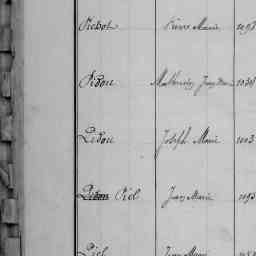 Pichot Pierre Marie 1097
Pidou Mathurin Jean Marie 1038
Pidou Joseph Marie 1003
Pidou Piel Jean Marie 1095
Piel Jean Marie